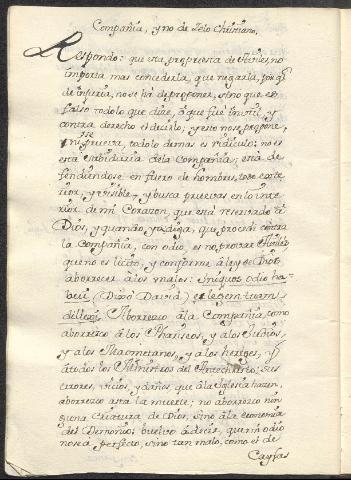 Compañia, y no de Zelo Christiano.
Respondo: que esta propuesta de Herles, no
importa mas concederla, que negarla, porq̃
de injuria, no se ha de proponer, sino que es
falso todo lo que dice, ò que fue inutil y
contra derecho el decirlo; y esto no se propone,
se
ni prueva, todo lo demas es ridiculo; no es
esta sabiduria dela Compañia, està de
fendiendose en fuero de hombres, todo exte
rior, y visible, y busca pruevas en lo inte
rior de mi Corazon, que està reservado à
Dios, y quando yo diga, que procedi contra
la Compañia, con odio, es no provar
que no es licito, y conforme à la ley de Dios
aborrecer à los malos: iniquos odio ha-
bui (Dixo David) et legem tuam
dilexi. Aborrezco à la Compañia, como
aborrezco à los Phariseos, y a los Judios,
y a los Mahometanos, y a los hereges, y
à todos los Ministros del Antechristo; sus
errores, vicios, y daños, que à la Iglesia hazen,
aborrezco asta la muerte; no aborrezco nin
guna Criatura de Dios, sino à la economia
del Demonio; buelvo à decir, que mi odio
no sea perfecto, sino tan malo, como el de
Cayfas